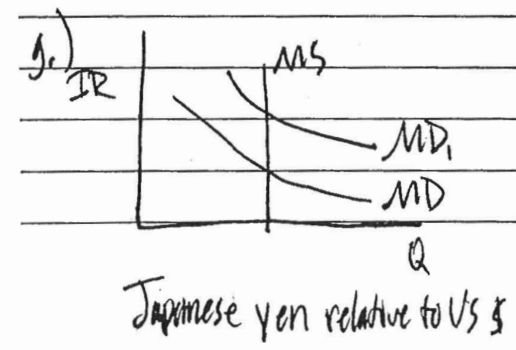 g.)
IR
MS
MD₁
MD
Q
Japanese yen relative to US $